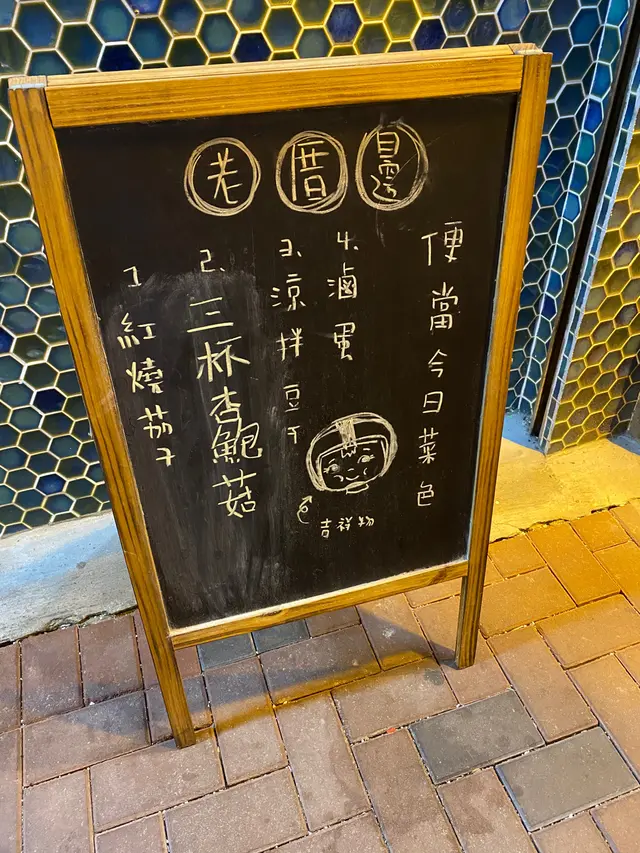 老厝邊
便當今日菜色
1.紅燒茄子
2.三杯杏鮑菇
3.涼拌豆干
4.滷蛋
吉祥物